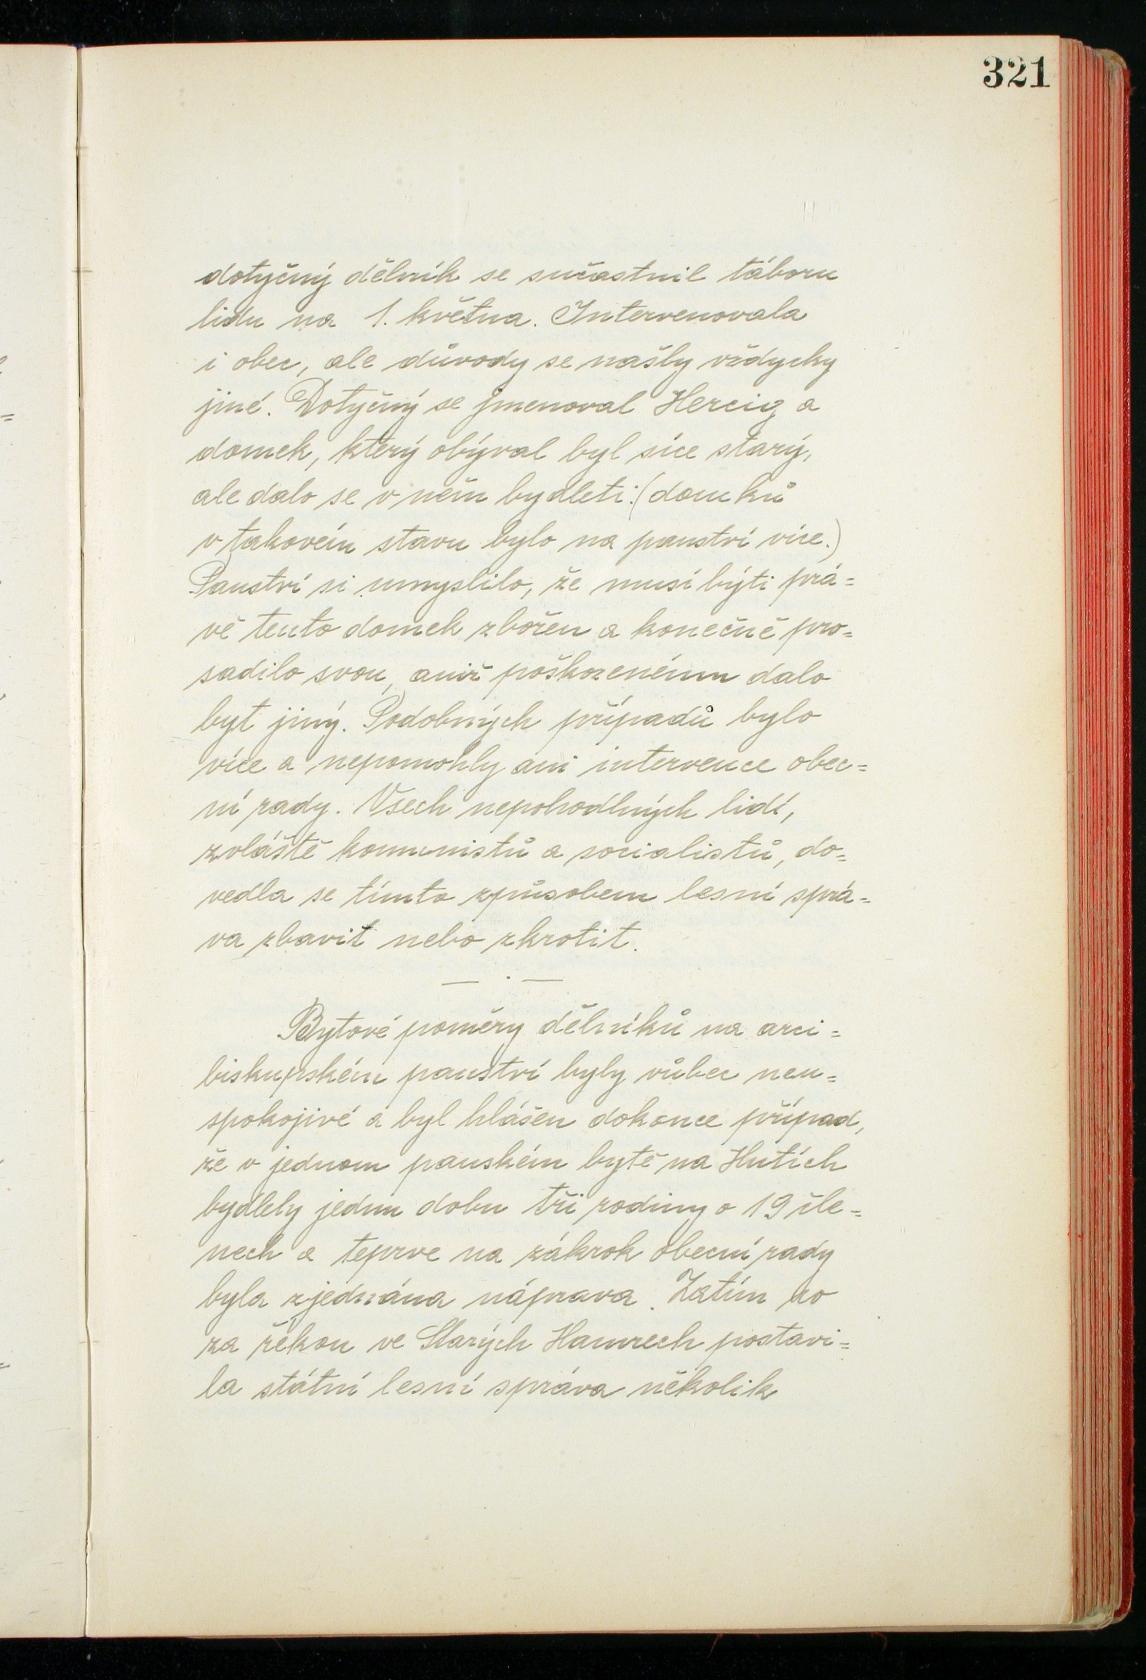 321
dotyčný dělník se súčastnil táboru
lidu na 1. května. Intervenovala
i obec, ale důvody se našly vždycky
jiné. Dotyčný se jmenoval Hercig a
domek, který obýval byl sice starý,
ale dalo se v něm bydleti. (domků
v takovém stavu bylo na panství více.)
Panství si umyslilo, že musí býti prá=
vě tento domek zbořen a konečně pro=
sadilo svou, aniž poškozenému dalo
byt jiný. Podobných případů bylo
více a nepomohly ani intervence obec=
ní rady. Všech nepohodlných lidí,
zvláště komunistů a socialistů, do=
vedla se tímto způsobem lesní sprá=
va zbavit nebo zkrotit.
— . —
Bytové poměry dělníků na arci=
biskupském panství byly vůbec neu=
spokojivé a byl hlášen dokonce případ,
že v jednom panském bytě na Hutích
bydlely jednu dobu tři rodiny o 19 čle=
nech a teprve na zákrok obecní rady
byla zjednána náprava. Zatím co
za řekou ve Starých Hamrech postavi=
la státní lesní správa několik